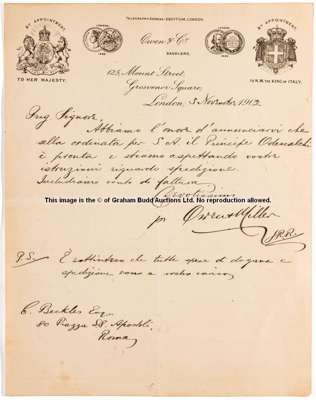 TELEGRAPHIC ADDRESS: EQUITIUM, LONDON.
BY APPOINTMENT
BY APPOINTMENT
Owen & Co.
SADDLERS,
TO HER MAJESTY.
TO H.M. THE KING OF ITALY.
125, Mount Street,
Grosvenor Square,
London, 5 November 1912
Preg Signor,
Abbiamo l'onor d'annunciarvi che
alla ordinata per S.A. il Principe Odescalchi
è pronta e stiamo aspettando vostre
istruzioni riguardo spedizione.
Includiamo conto di fattura
Devotissimi
This image is the © of Graham Budd Auctions Ltd. No reproduction allowed.
pr Owen & Miller
P.S. È sottinteso che tutte spese di dogana e
spedizione sono a vostro carico
C. Beckles Esq.
80 Piazza SS. Apostoli,
Roma